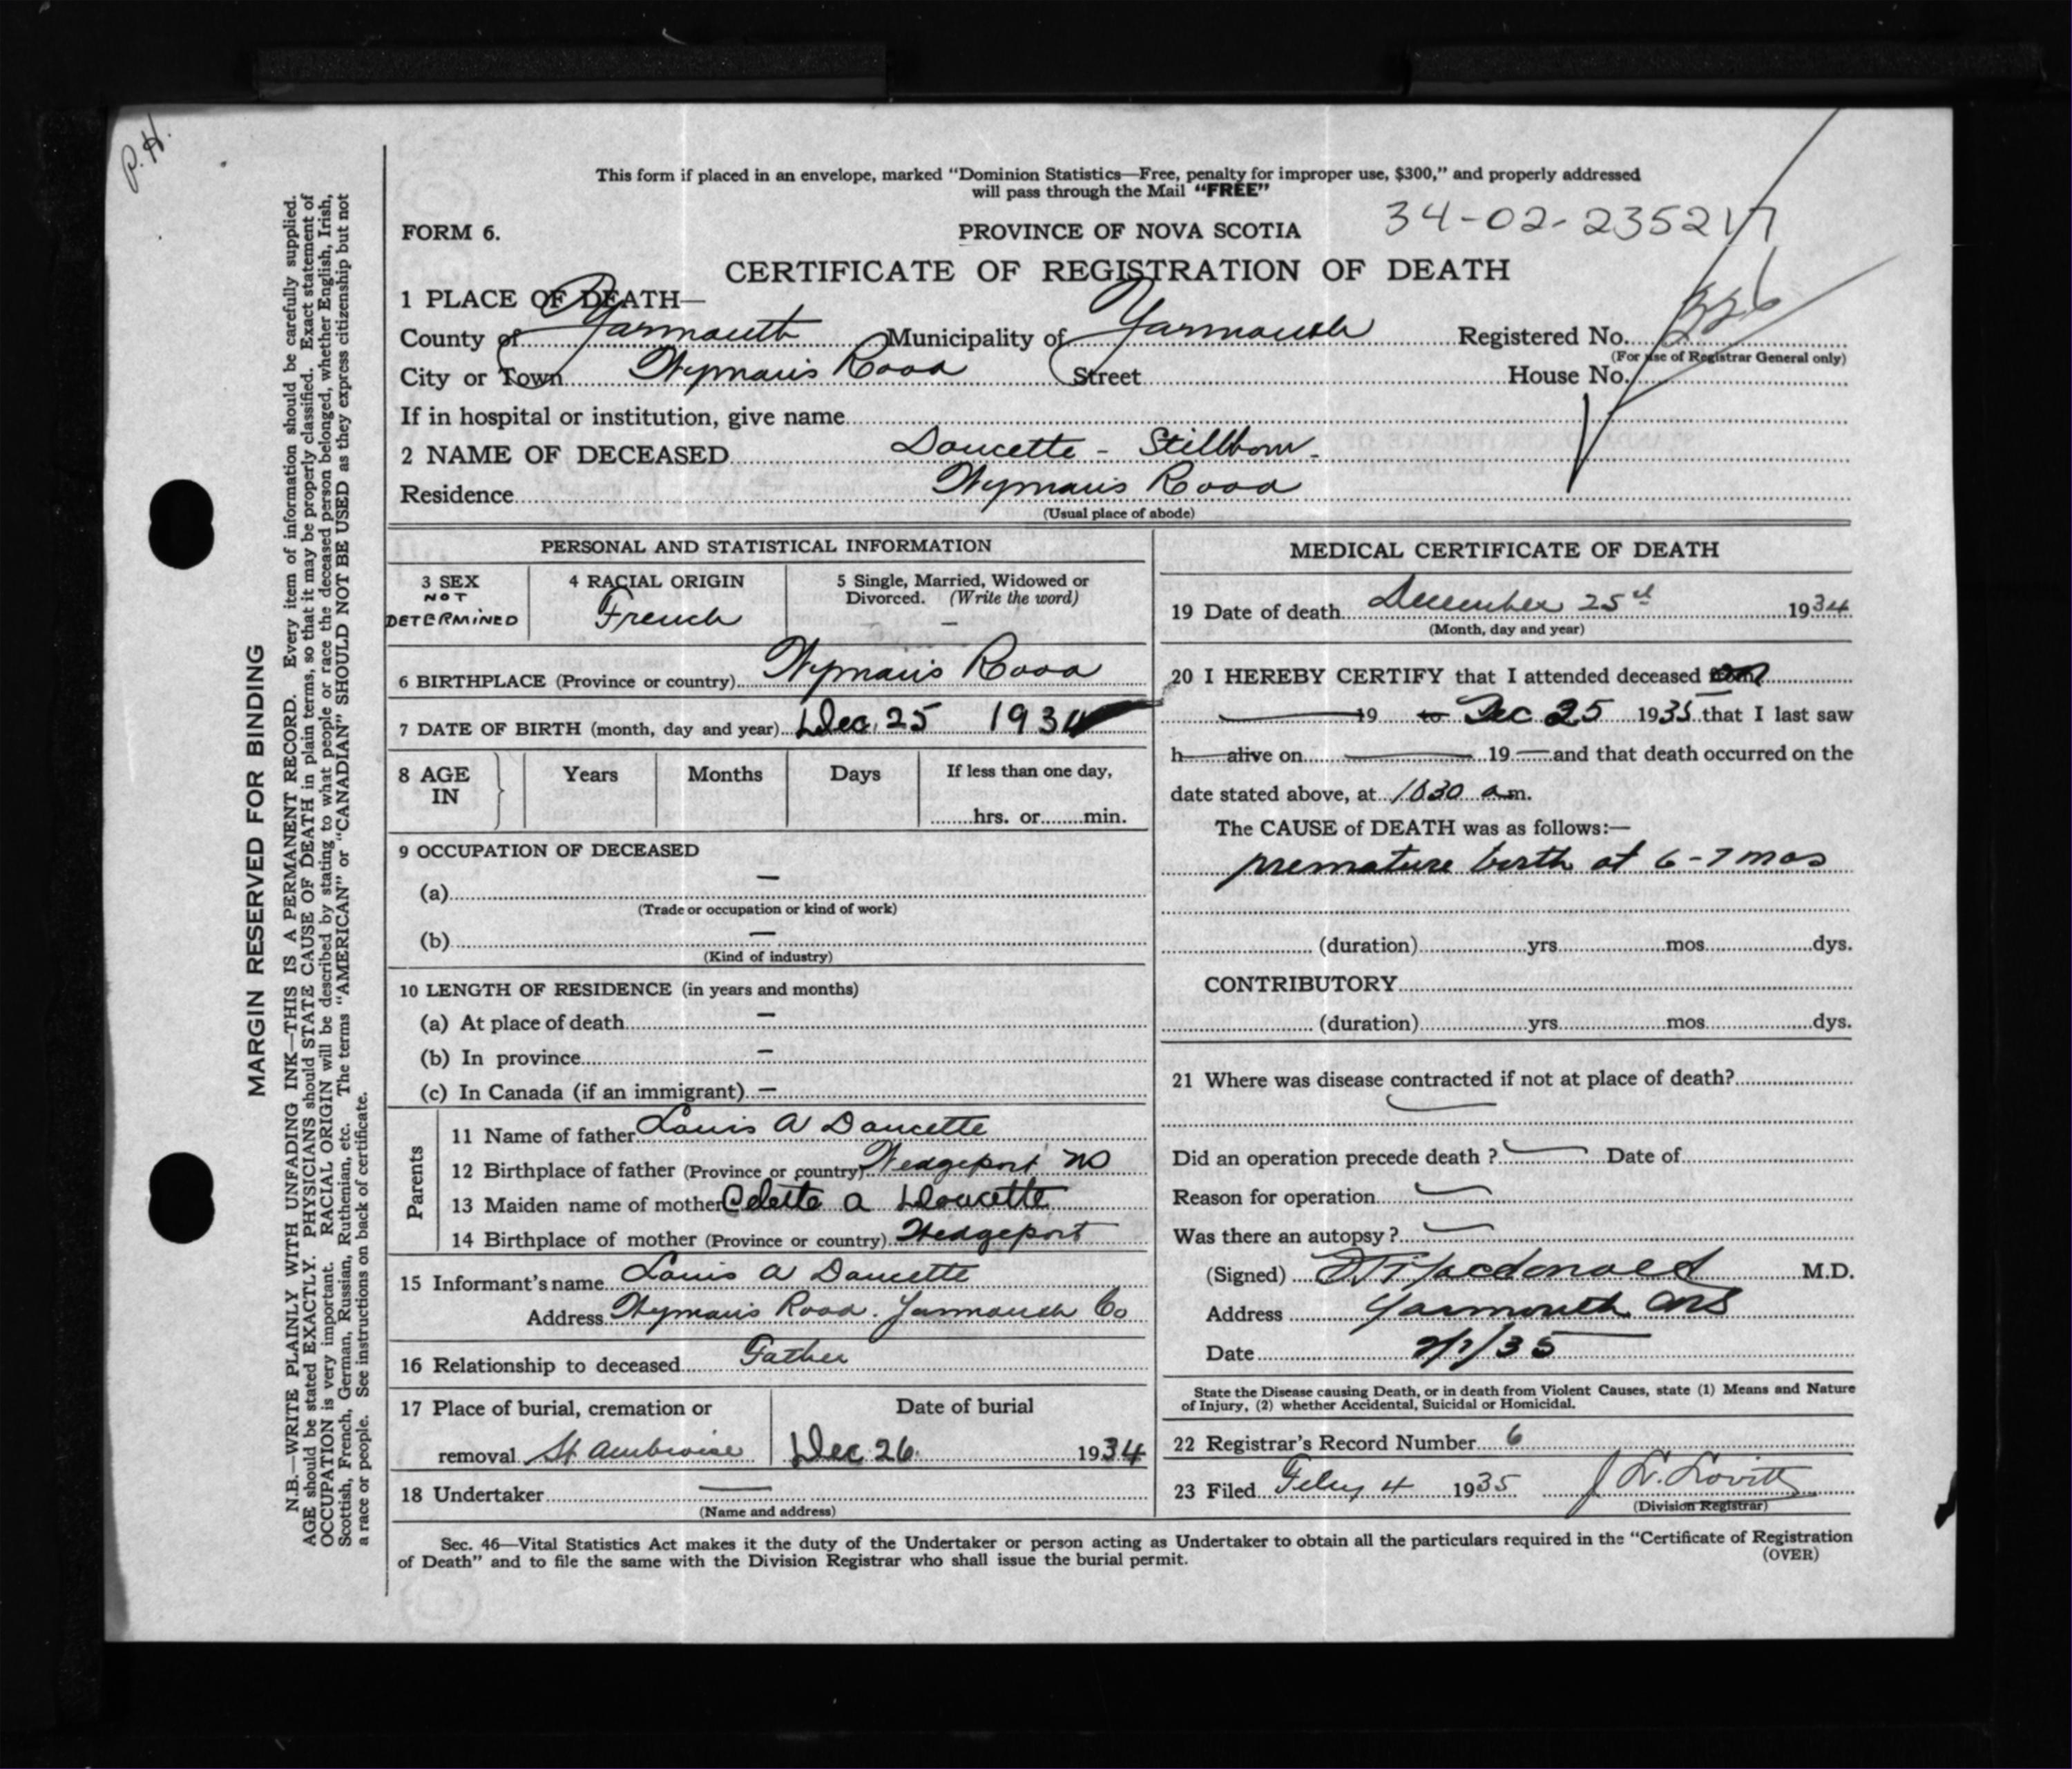 P.H.
This form if placed in an envelope, marked "Dominion Statistics—Free, penalty for improper use, $300," and properly addressed
will pass through the Mail "FREE"
34-02-235217
FORM 6. PROVINCE OF NOVA SCOTIA
CERTIFICATE OF REGISTRATION OF DEATH
1 PLACE OF DEATH—
County of Yarmouth Municipality of Yarmouth Registered No. 326
(For use of Registrar General only)
City or Town Wyman's Road Street House No.
If in hospital or institution, give name
2 NAME OF DECEASED Doucette - Stillborn.
Residence Wyman's Road
(Usual place of abode)
PERSONAL AND STATISTICAL INFORMATION
3 SEX
NOT
DETERMINED
4 RACIAL ORIGIN
French
5 Single, Married, Widowed or
Divorced. (Write the word)
—
6 BIRTHPLACE (Province or country) Wyman's Road
7 DATE OF BIRTH (month, day and year) Dec. 25 1934
8 AGE
IN
Years Months Days If less than one day,
hrs. or min.
9 OCCUPATION OF DECEASED
(a) —
(Trade or occupation or kind of work)
(b) —
(Kind of industry)
10 LENGTH OF RESIDENCE (in years and months)
(a) At place of death —
(b) In province —
(c) In Canada (if an immigrant) —
Parents
11 Name of father Louis A Doucette
12 Birthplace of father (Province or country) Wedgeport NS
13 Maiden name of mother Celeste A Doucette
14 Birthplace of mother (Province or country) Wedgeport
15 Informant's name Louis A Doucette
Address Wyman's Road. Yarmouth Co
16 Relationship to deceased Father
17 Place of burial, cremation or
removal St Ambroise
Date of burial
Dec 26. 1934
18 Undertaker —
(Name and address)
MEDICAL CERTIFICATE OF DEATH
19 Date of death December 25th 1934
(Month, day and year)
20 I HEREBY CERTIFY that I attended deceased
19 to Dec 25 1935 that I last saw
h alive on 19 and that death occurred on the
date stated above, at 1030 a.m.
The CAUSE of DEATH was as follows:—
premature birth at 6-7 mos
(duration) yrs. mos. dys.
CONTRIBUTORY
(duration) yrs. mos. dys.
21 Where was disease contracted if not at place of death?
Did an operation precede death? — Date of
Reason for operation —
Was there an autopsy? —
(Signed) Macdonald M.D.
Address Yarmouth NS
Date 2/1/35
State the Disease causing Death, or in death from Violent Causes, state (1) Means and Nature
of Injury, (2) whether Accidental, Suicidal or Homicidal.
22 Registrar's Record Number 6
23 Filed Feby 4 1935 J L. Lovitt
(Division Registrar)
Sec. 46—Vital Statistics Act makes it the duty of the Undertaker or person acting as Undertaker to obtain all the particulars required in the "Certificate of Registration
of Death" and to file the same with the Division Registrar who shall issue the burial permit.
(OVER)
MARGIN RESERVED FOR BINDING
N.B.—WRITE PLAINLY WITH UNFADING INK—THIS IS A PERMANENT RECORD. Every item of information should be carefully supplied.
AGE should be stated EXACTLY. PHYSICIANS should STATE CAUSE OF DEATH in plain terms, so that it may be properly classified. Exact statement of
OCCUPATION is very important. RACIAL ORIGIN will be described by stating to what people or race the deceased person belonged, whether English, Irish,
Scottish, French, German, Russian, Ruthenian, etc. The terms "AMERICAN" or "CANADIAN" SHOULD NOT BE USED as they express citizenship but not
a race or people. See instructions on back of certificate.